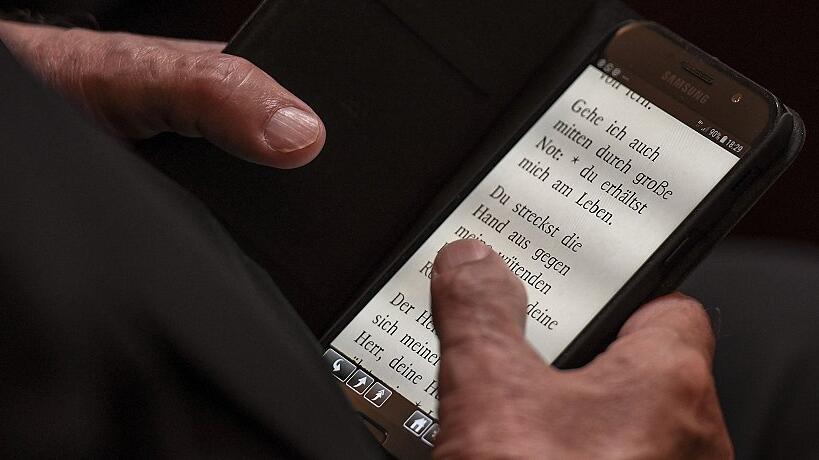 SAMSUNG
90% 18:29
von fern.
Gehe ich auch
mitten durch große
Not: * du erhältst
mich am Leben.
Du streckst die
Hand aus gegen
meine wütenden
deine
Der
sich meiner
Herr, deine